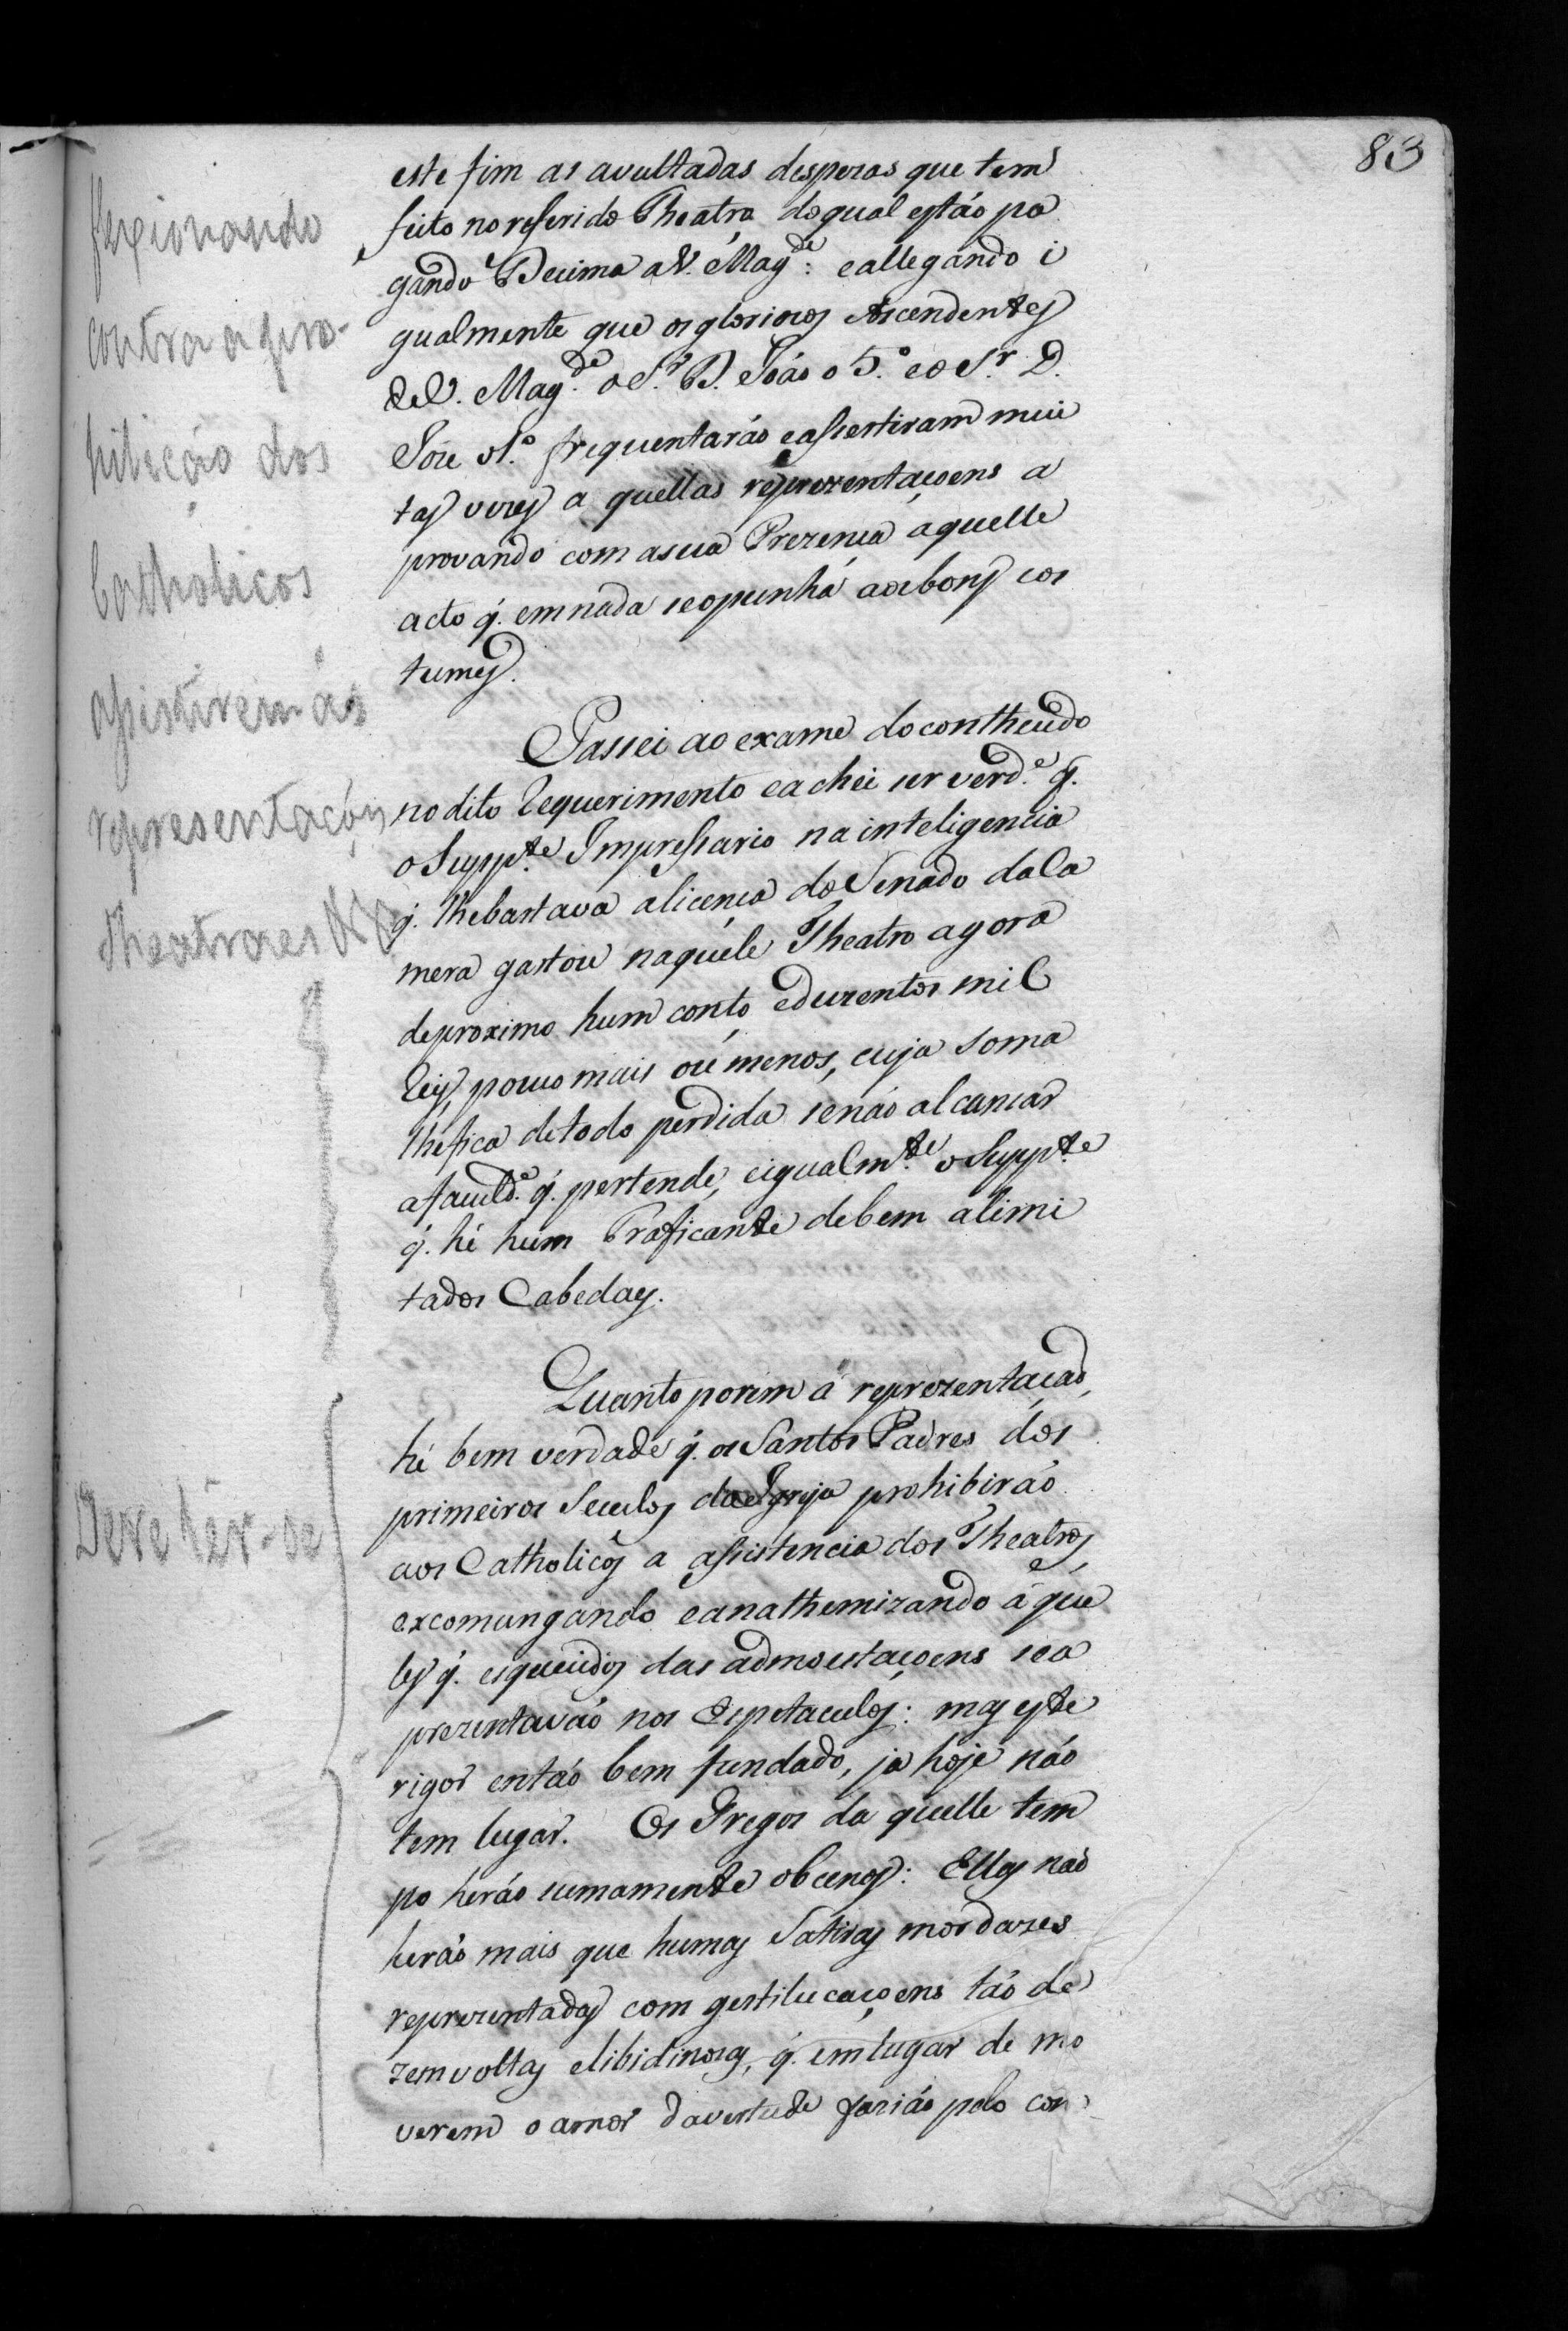 83
este fim as avultadas despezas que tem
feito no referido Theatro, do qual estáo pa
gando Decima a V. Mag.de: e allegando i
gualmente que os gloriozos Ascendentes
de V. Mag.de o S.r D. Joáo o 5.º e o S.r D.
Joze o 1.º frequentaráo e assestiram mui
tas vezes a quellas reprezentaçoens a
provando com a sua Prezença aquelle
acto q. em nada se opunhá aos bons cos
tumes.
Passei ao exame do contheudo
no dito Requerimento e achei ser verd.e q.
o Supp.te Impressario na inteligencia
q. lhe bastava a licença do Senado da Ca
mera gastou naquele Theatro agora
de proximo hum conto e duzentos mil
Reis, pouco mais ou menos, cuja soma
lhe fica de todo perdida se náo alcançar
a faculd.e q. pertende, e igualm.te o Supp.te
q. hé hum Traficante de bem alimi
tados Cabedaes.
Quanto porem á reprezentaçaõ,
hé bem verdade q. os Santos Padres dos
primeiros Seculos da Igreja prohibiráo
aos Catholicos a assistencia dos Theatros,
excomungando e anathemizando á que
les q. esquecidos das admoestaçoens se a
prezentaváo nos Espetaculos: mas este
rigor entáo bem fundado, ja hoje náo
tem lugar. Os Gregos da quelle tem
po heráo sumamente obcenos: Ellas naõ
heráo mais que humas Satiras mordazes
reprezentadas com gestilucaçoens táo de
zemvoltas e libidinozas, q. em lugar de mo
verem o amor da vertude faziáo pelo con
contra a pro-
hibicáo dos
Catholicos
assistirem ás
representacóes
theatraes
Deve ler-se